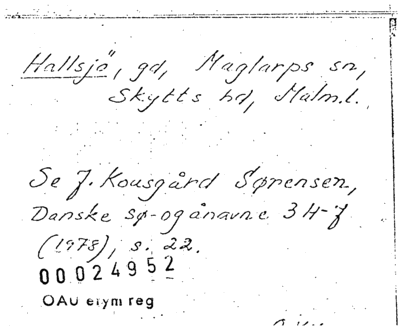 Hallsjö, gd, Maglarps sn,
Skytts hd, Malm.l.
Se J. Kousgård Sørensen,
Danske sø- og ånavne 3 H-J
(1978), s. 22.
00024952
OAU etym reg